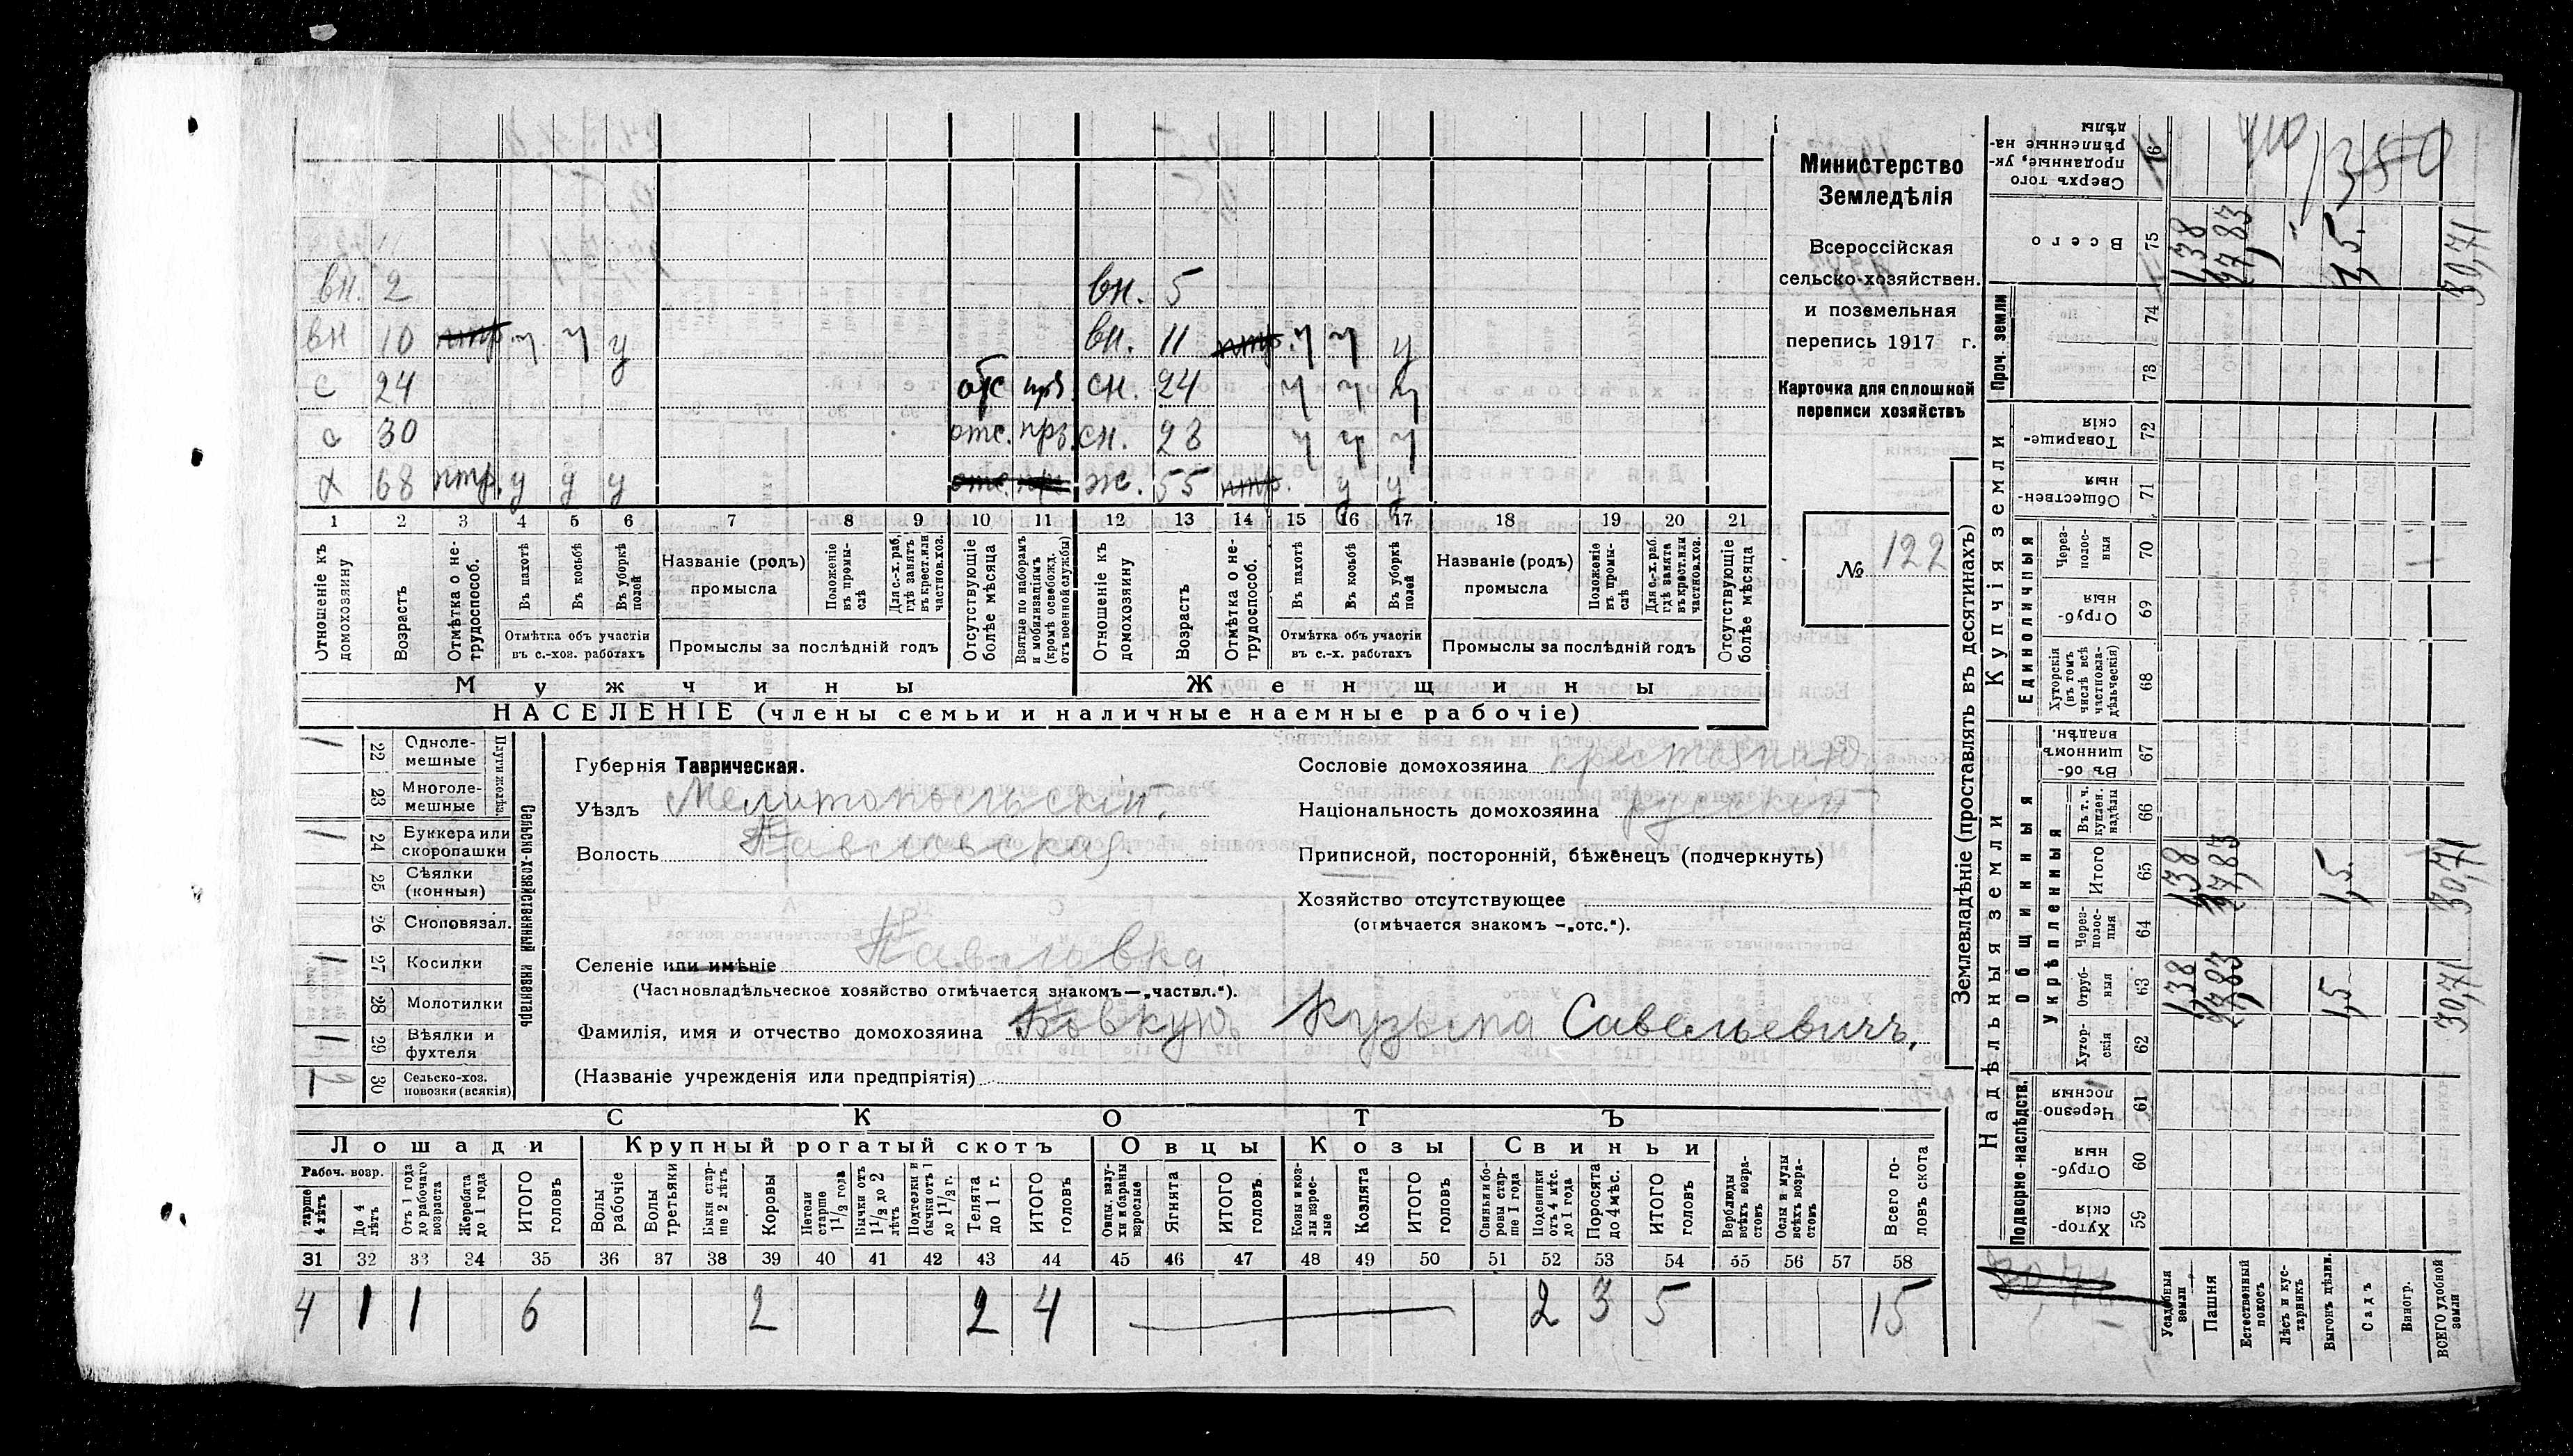 вн. 2 вн. 5
вн 10 нтр. у у у вн. 11 нтр. у у у
с 24 отс прз. сн. 24 у у у
с 30 отс. прз. сн. 28 у у у
х 68 нтр. у у у отс. прз. ж. 55 нтр. у у
1 2 3 4 5 6 7 8 9 10 11 12 13 14 15 16 17 18 19 20 21
Отношеніе къ домохозяину
Возрастъ
Отмѣтка о не-трудоспособ.
Въ пахотѣ
Въ косьбѣ
Въ уборкѣ полей
Отмѣтка объ участіи въ с.-хоз. работахъ
Названіе (родъ) промысла
Положеніе въ промы-слѣ
Для с.-х. раб. гдѣ занятъ въ крест. или частнов. хоз.
Промыслы за послѣдній годъ
Отсутствующіе болѣе мѣсяца
Взятые по наборамъ и мобилизаціямъ (кромѣ освобожд. отъ военной службы)
Отношеніе къ домохозяину
Возрастъ
Отмѣтка о не-трудоспособ.
Въ пахотѣ
Въ косьбѣ
Въ уборкѣ полей
Отмѣтка объ участіи въ с.-х. работахъ
Названіе (родъ) промысла
Положеніе въ промы-слѣ
Для с.-х. раб. гдѣ занята въ крест. или частнов. хоз.
Промыслы за послѣдній годъ
Отсутствующіе болѣе мѣсяца
Мужчины Женщины
НАСЕЛЕНІЕ (члены семьи и наличные наемные рабочіе)
Министерство
Земледѣлія
Всероссійская
сельско-хозяйствен.
и поземельная
перепись 1917 г.
Карточка для сплошной
переписи хозяйствъ
№ 122
Сельско-хозяйственный инвентарь
22 Одноле-мешные 1
23 Многоле-мешные
24 Буккера или скоропашки 1
25 Сѣялки (конныя)
26 Сноповязал.
27 Косилки 1
28 Молотилки
29 Вѣялки и фухтеля 1
30 Сельско-хоз. повозки (всякія) 2
Губернія Таврическая.
Уѣздъ Мелитопольскій.
Волость Павловская
Селеніе или имѣніе Павловка
(Частновладѣльческое хозяйство отмѣчается знакомъ—„частвл.“).
Фамилія, имя и отчество домохозяина Ковкунъ Кузьма Савельевичъ.
(Названіе учрежденія или предпріятія)
Сословіе домохозяина
Національность домохозяина русскій
Приписной, посторонній, бѣженецъ (подчеркнуть)
Хозяйство отсутствующее
(отмѣчается знакомъ —„отс.“).
СКОТЪ
Лошади Крупный рогатый скотъ Овцы Козы Свиньи
Рабоч. возр.
старше 4 лѣтъ
До 4 лѣтъ
Отъ 1 года до рабочаго возраста
Жеребята до 1 года
ИТОГО головъ
Волы рабочіе
Волы третьяки
Быки стар-ше 2 лѣтъ
Коровы
Нетели старше 1 1/2 года
Бычки отъ 1 1/2 до 2 лѣтъ
Подтелки и бычки отъ 1 до 1 1/2 г.
Телята до 1 г.
ИТОГО головъ
Овцы, валу-хи и бараны взрослые
Ягнята
ИТОГО головъ
Козы и коз-лы взрос-лые
Козлята
ИТОГО головъ
Свиньи и бо-ровы стар-ше 1 года
Подсвинки отъ 4 мѣс. до 1 года
Поросята до 4 мѣс.
ИТОГО головъ
Верблюды всѣхъ возра-стовъ
Ослы и мулы всѣхъ возра-стовъ
Всего го-ловъ скота
31 32 33 34 35 36 37 38 39 40 41 42 43 44 45 46 47 48 49 50 51 52 53 54 55 56 57 58
4 1 1 6 2 2 4 2 3 5 15
Землевладѣніе (проставлять въ десятинахъ)
Надѣльныя земли Купчія земли Проч. земли
Подворно-наслѣдств.
Общинныя
Укрѣпленныя
Единоличныя
59 Хутор-скія
60 Отруб-ныя
61 Черезпо-лосныя
62 Хутор-скія
63 Отруб-ныя 1,38 27,83 1,5 30,71
64 Через-полос-ныя
65 Итого 1,38 27,83 1,5 30,71
66 Въ т. ч. куплен. надѣлы
67 Въ об-щинномъ владѣн.
68 Хуторскія (въ томъ числѣ всѣ частновла-дѣльческія)
69 Отруб-ныя
70 Через-полос-ныя
71 Обществен-ныя
72 Товарище-скія
73
74
75 Всего 1,38 27,83 1,5. 30,71
76 Сверхъ того проданные, ук-рѣпленные на-дѣлы
Усадебныя земли
Пашня
Естественный покосъ
Лѣсъ и кус-тарникъ
Выгонъ цѣлин.
Садъ
Виногр.
ВСЕГО удобной земли
30,71
1350